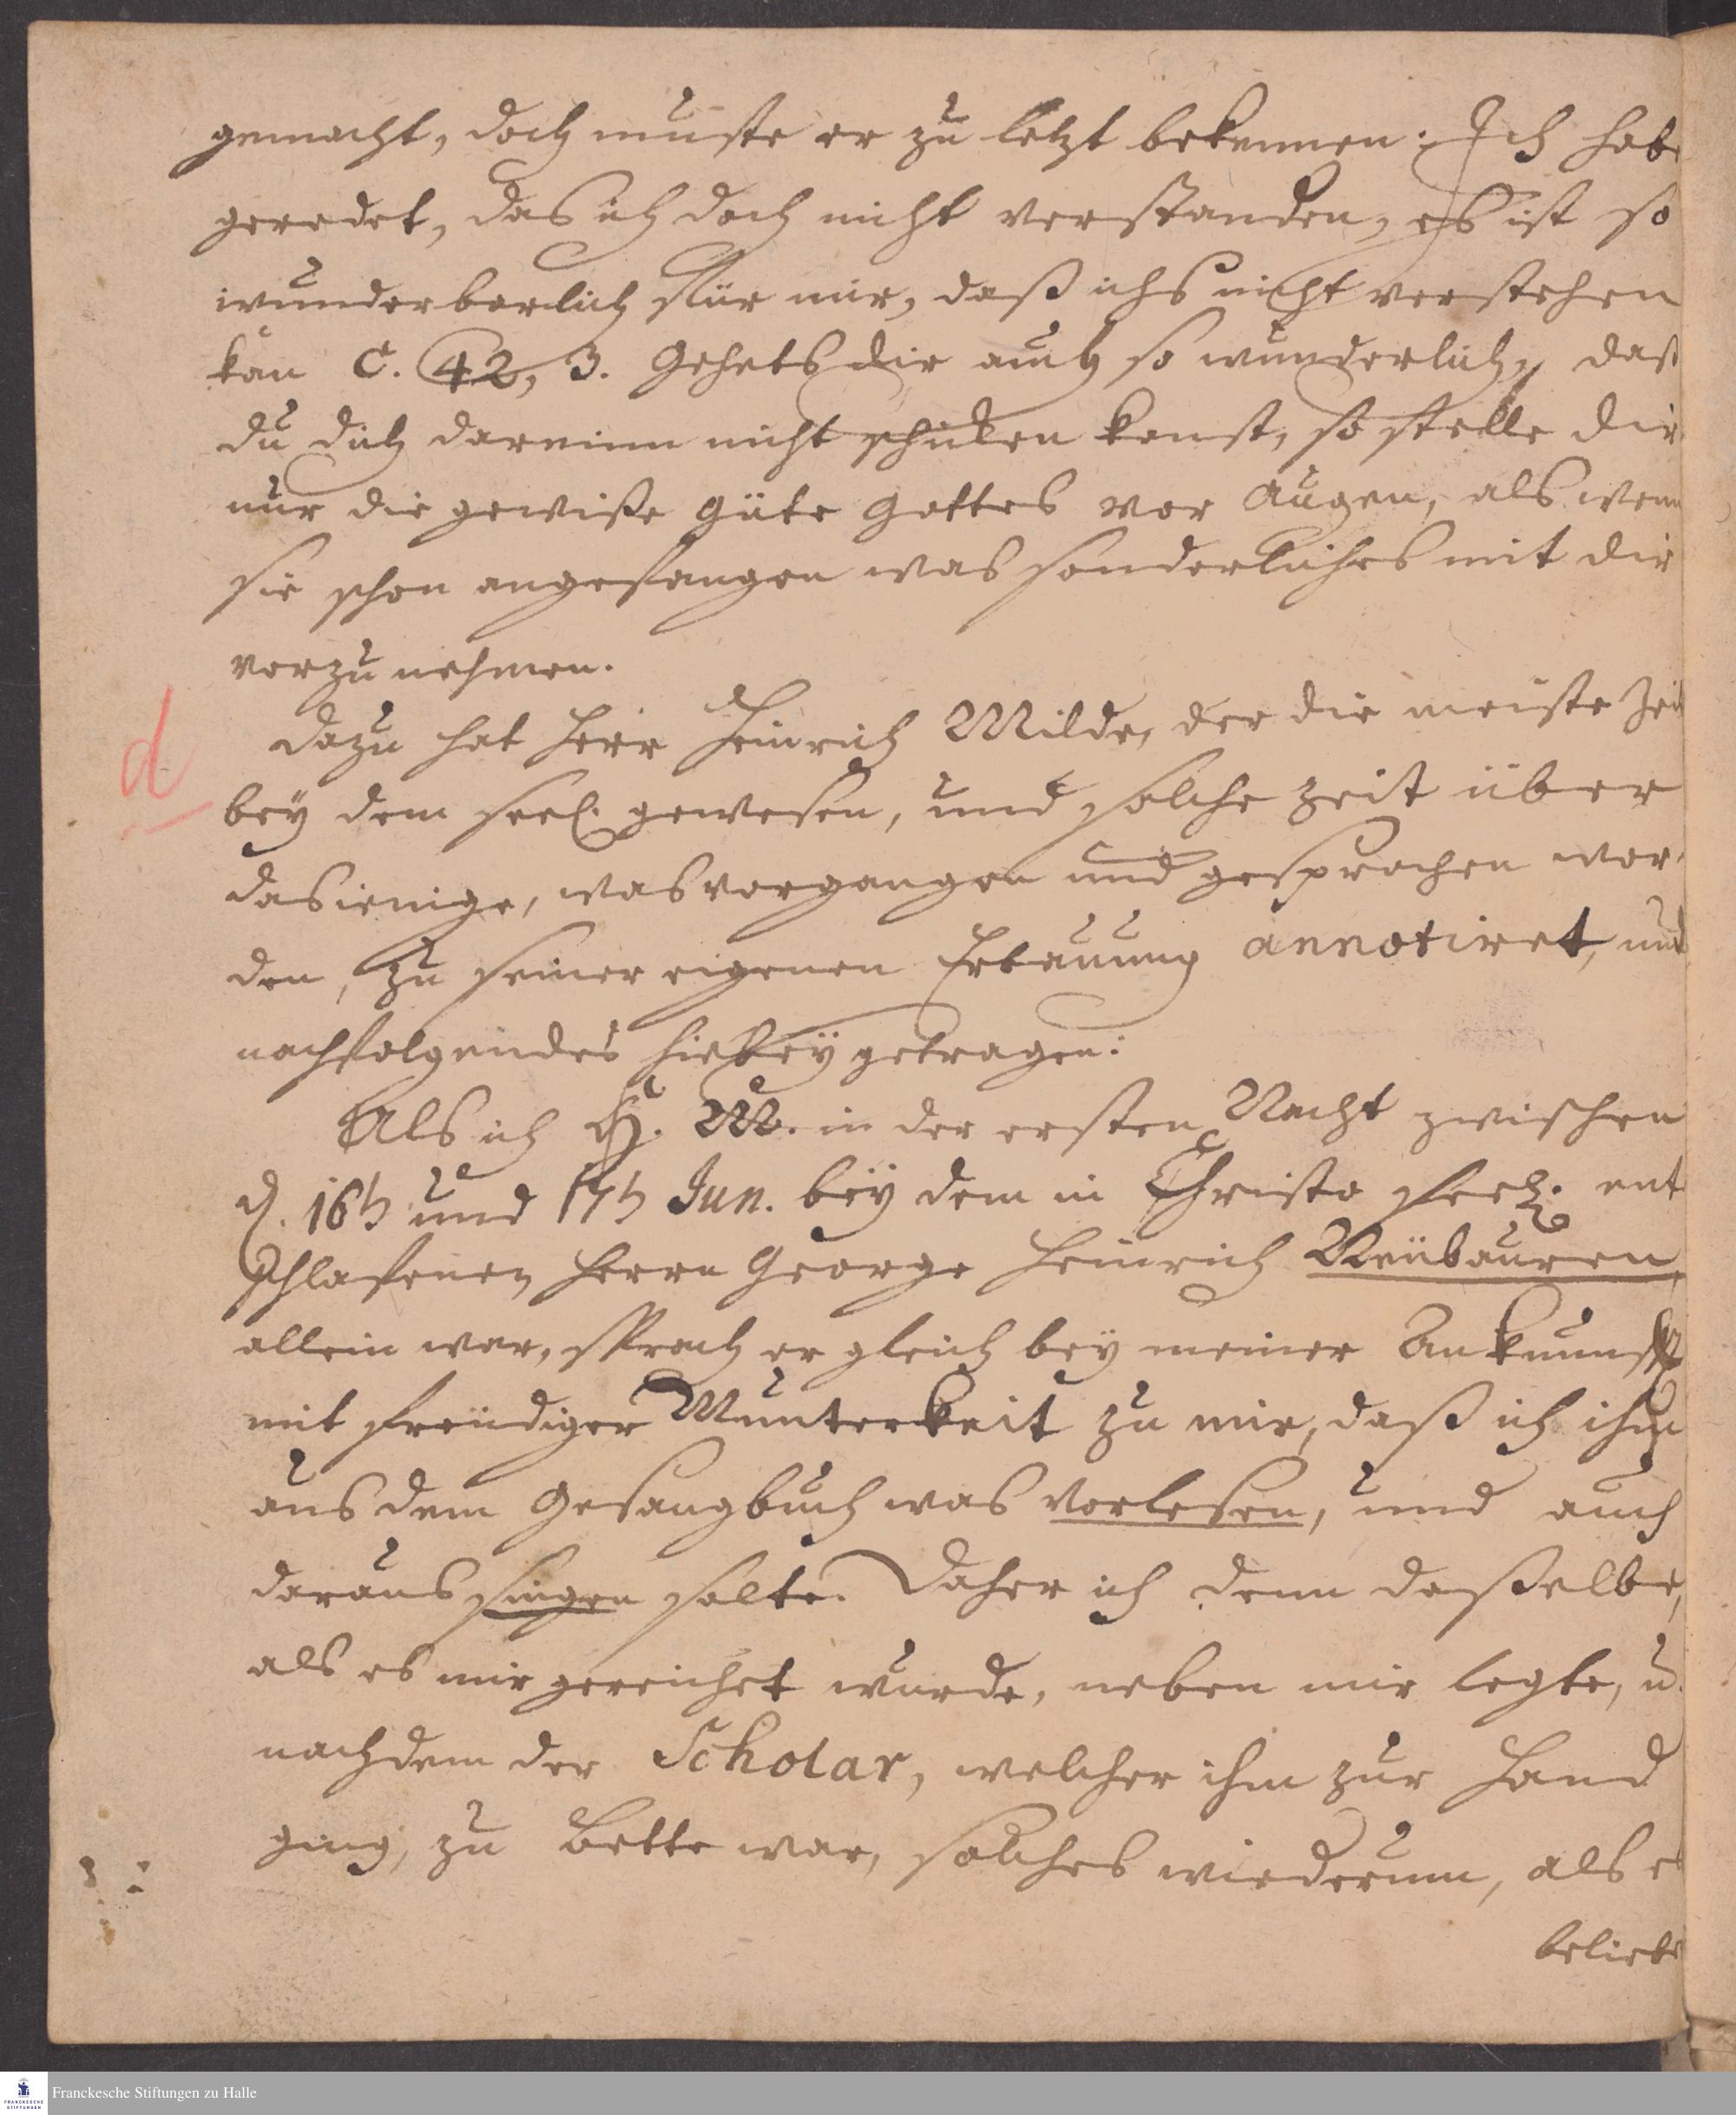 gemacht, doch muste er zu letzt bekennen: Ich habe
geredet, das ich doch nicht verstanden, es ist so
wunderbarlich für mir, daß ichs nicht verstehen
kan C. 42, 3. Gehets dir auch so wunderlich, daß
du dich dareinn nicht schicken kanst, so stelle dir
nur die gewiße Güte Gottes vor Augen, als wenn
sie schon angefangen was sonderliches mit dir
vorzunehmen.
d
Dazu hat Herr Heinrich Milde, der die meiste Zeit
bey dem seel. gewesen, und solche Zeit über
dasienige, was vorgangen und gesprochen wor-
den, zu seiner eigenen Erbauung annotiret, und
nachfolgendes hiebey getragen:
Als ich H. M. in der ersten Nacht zwischen
d. 16t und 17t Jun. bey dem in Christo seel. ent
schlafenen Herrn George Heinrich Neübauren,
allein war, sprach er gleich bey meiner Ankunfft
mit freudiger Munterkeit zu mir, daß ich ihm
aus dem Gesangbuch was vorlesen, und auch
daraus singen solte. Daher ich denn daßelbe,
als es mir gereichet wurde, neben mir legte, u.
nachdem der Scholar, welcher ihm zur Hand
ging, zu Bette war, solches wiederum, als es
beliebt
Franckesche Stiftungen zu Halle
FRANCKESCHE
STIFTUNGEN